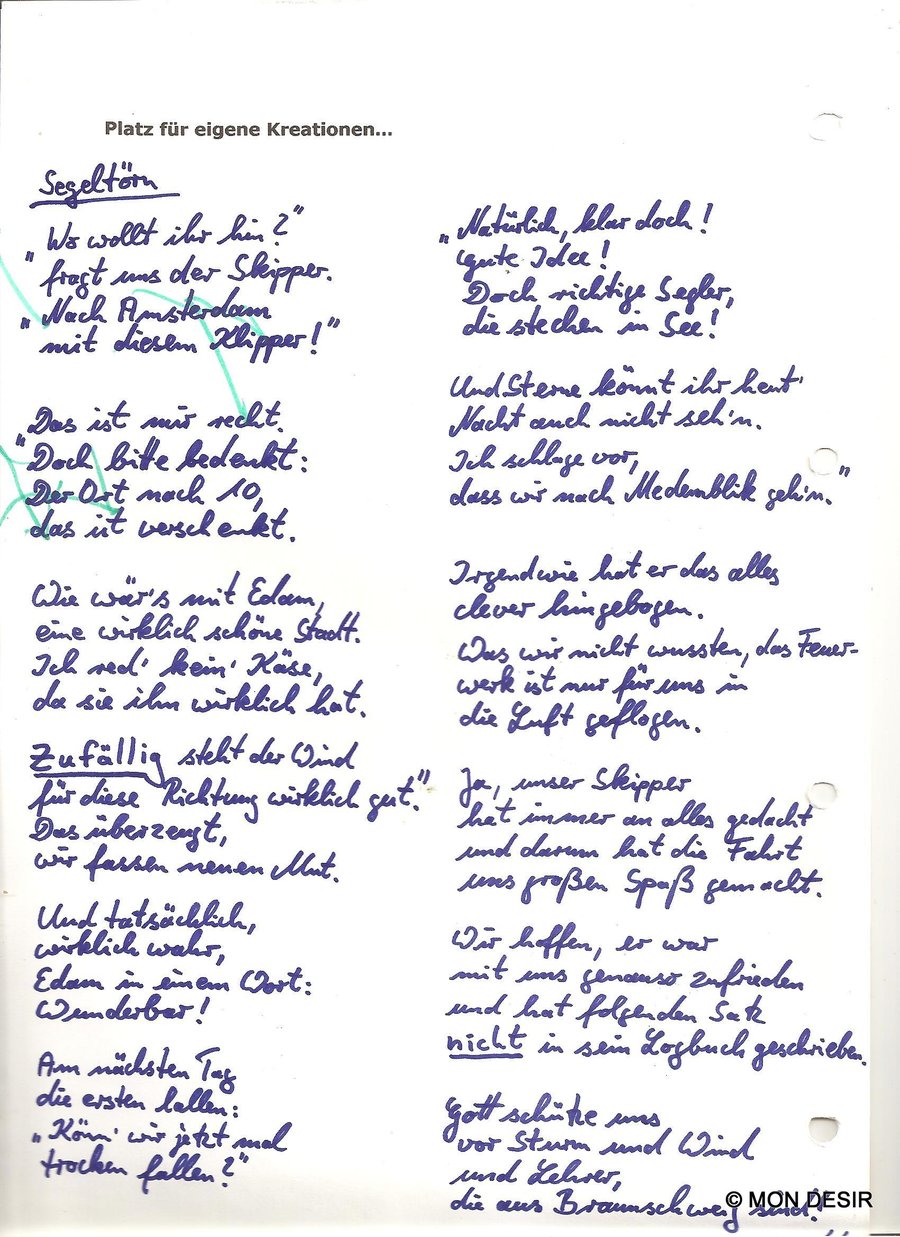 Platz für eigene Kreationen...
Segeltörn
"Wo wollt ihr hin?"
fragt uns der Skipper.
"Nach Amsterdam
mit diesem Klipper!"
"Das ist mir recht.
Doch bitte bedenkt:
Der Ort nach 10,
das ist verschenkt.
Wie wär's mit Edam,
eine wirklich schöne Stadt.
Ich red' kein' Käse,
da sie ihn wirklich hat.
Zufällig steht der Wind
für diese Richtung wirklich gut."
Das überzeugt,
wir fassen neuen Mut.
Und tatsächlich,
wirklich wahr,
Edam in einem Wort:
Wunderbar!
Am nächsten Tag
die ersten lallen:
"Könn' wir jetzt mal
trocken fallen?"
"Natürlich, klar doch!
gute Idee!
Doch richtige Segler,
die stechen in See!
Und Sterne könnt ihr heut'
Nacht auch nicht seh'n.
Ich schlage vor,
dass wir nach Medemblik geh'n."
Irgendwie hat er das alles
clever hingebogen.
Was wir nicht wussten, das Feuer-
werk ist nur für uns in
die Luft geflogen.
Ja, unser Skipper
hat immer an alles gedacht
und darum hat die Fahrt
uns großen Spaß gemacht.
Wir hoffen, er war
mit uns genauso zufrieden
und hat folgenden Satz
nicht in sein Logbuch geschrieben.
Gott schütze uns
vor Sturm und Wind
und Lehrer,
die aus Braunschweig sind!"
© MON DESIR